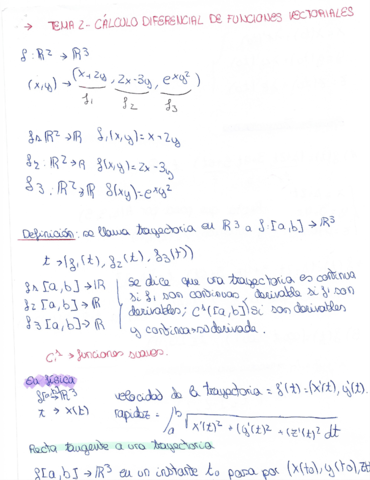 → TEMA 2 - CÁLCULO DIFERENCIAL DE FUNCIONES VECTORIALES
f: ℝ² → ℝ³
(x,y) → (x+2y, 2x-3y, eˣy²)
f₁ f₂ f₃
f₁: ℝ² → ℝ f₁(x,y) = x+2y
f₂: ℝ² → ℝ f(x,y) = 2x-3y
f₃: ℝ² → ℝ f(x,y) = eˣy²
Definición: se llama trayectoria en ℝ³ a f: [a,b] → ℝ³
t → (f₁(t), f₂(t), f₃(t))
f₁ [a,b] → ℝ
f₂ [a,b] → ℝ
f₃ [a,b] → ℝ
se dice que una trayectoria es continua
si fᵢ son continuas, derivable si fᵢ son
derivables; C¹([a,b]) si son derivables
y continua su derivada.
C¹ → funciones suaves.
En física
f: → ℝ³ velocidad de la trayectoria = f'(t) = (x'(t), y'(t),
t → x(t) rapidez = ∫ₐᵇ √x'(t)² + (y'(t))² + (z'(t))² dt
Recta tangente a una trayectoria
f[a,b] → ℝ³ en un instante t₀ pasa por (x(t₀), y(t₀), z(t